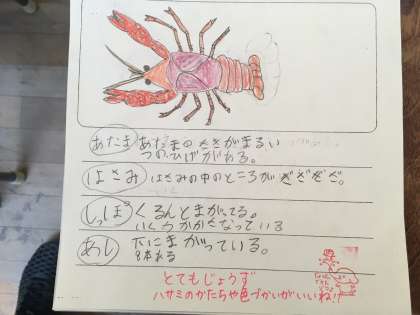 あたま あたまのさきがまるい
つのひげがある。
はさみ はさみの中のところが ぎざぎざ。
しっぽ くるんとまがってる。
いくつかかさなっている
あし 下にまがっている。
8本ある
とてもじょうず
ハサミのかたちや色づかいがいいね!!